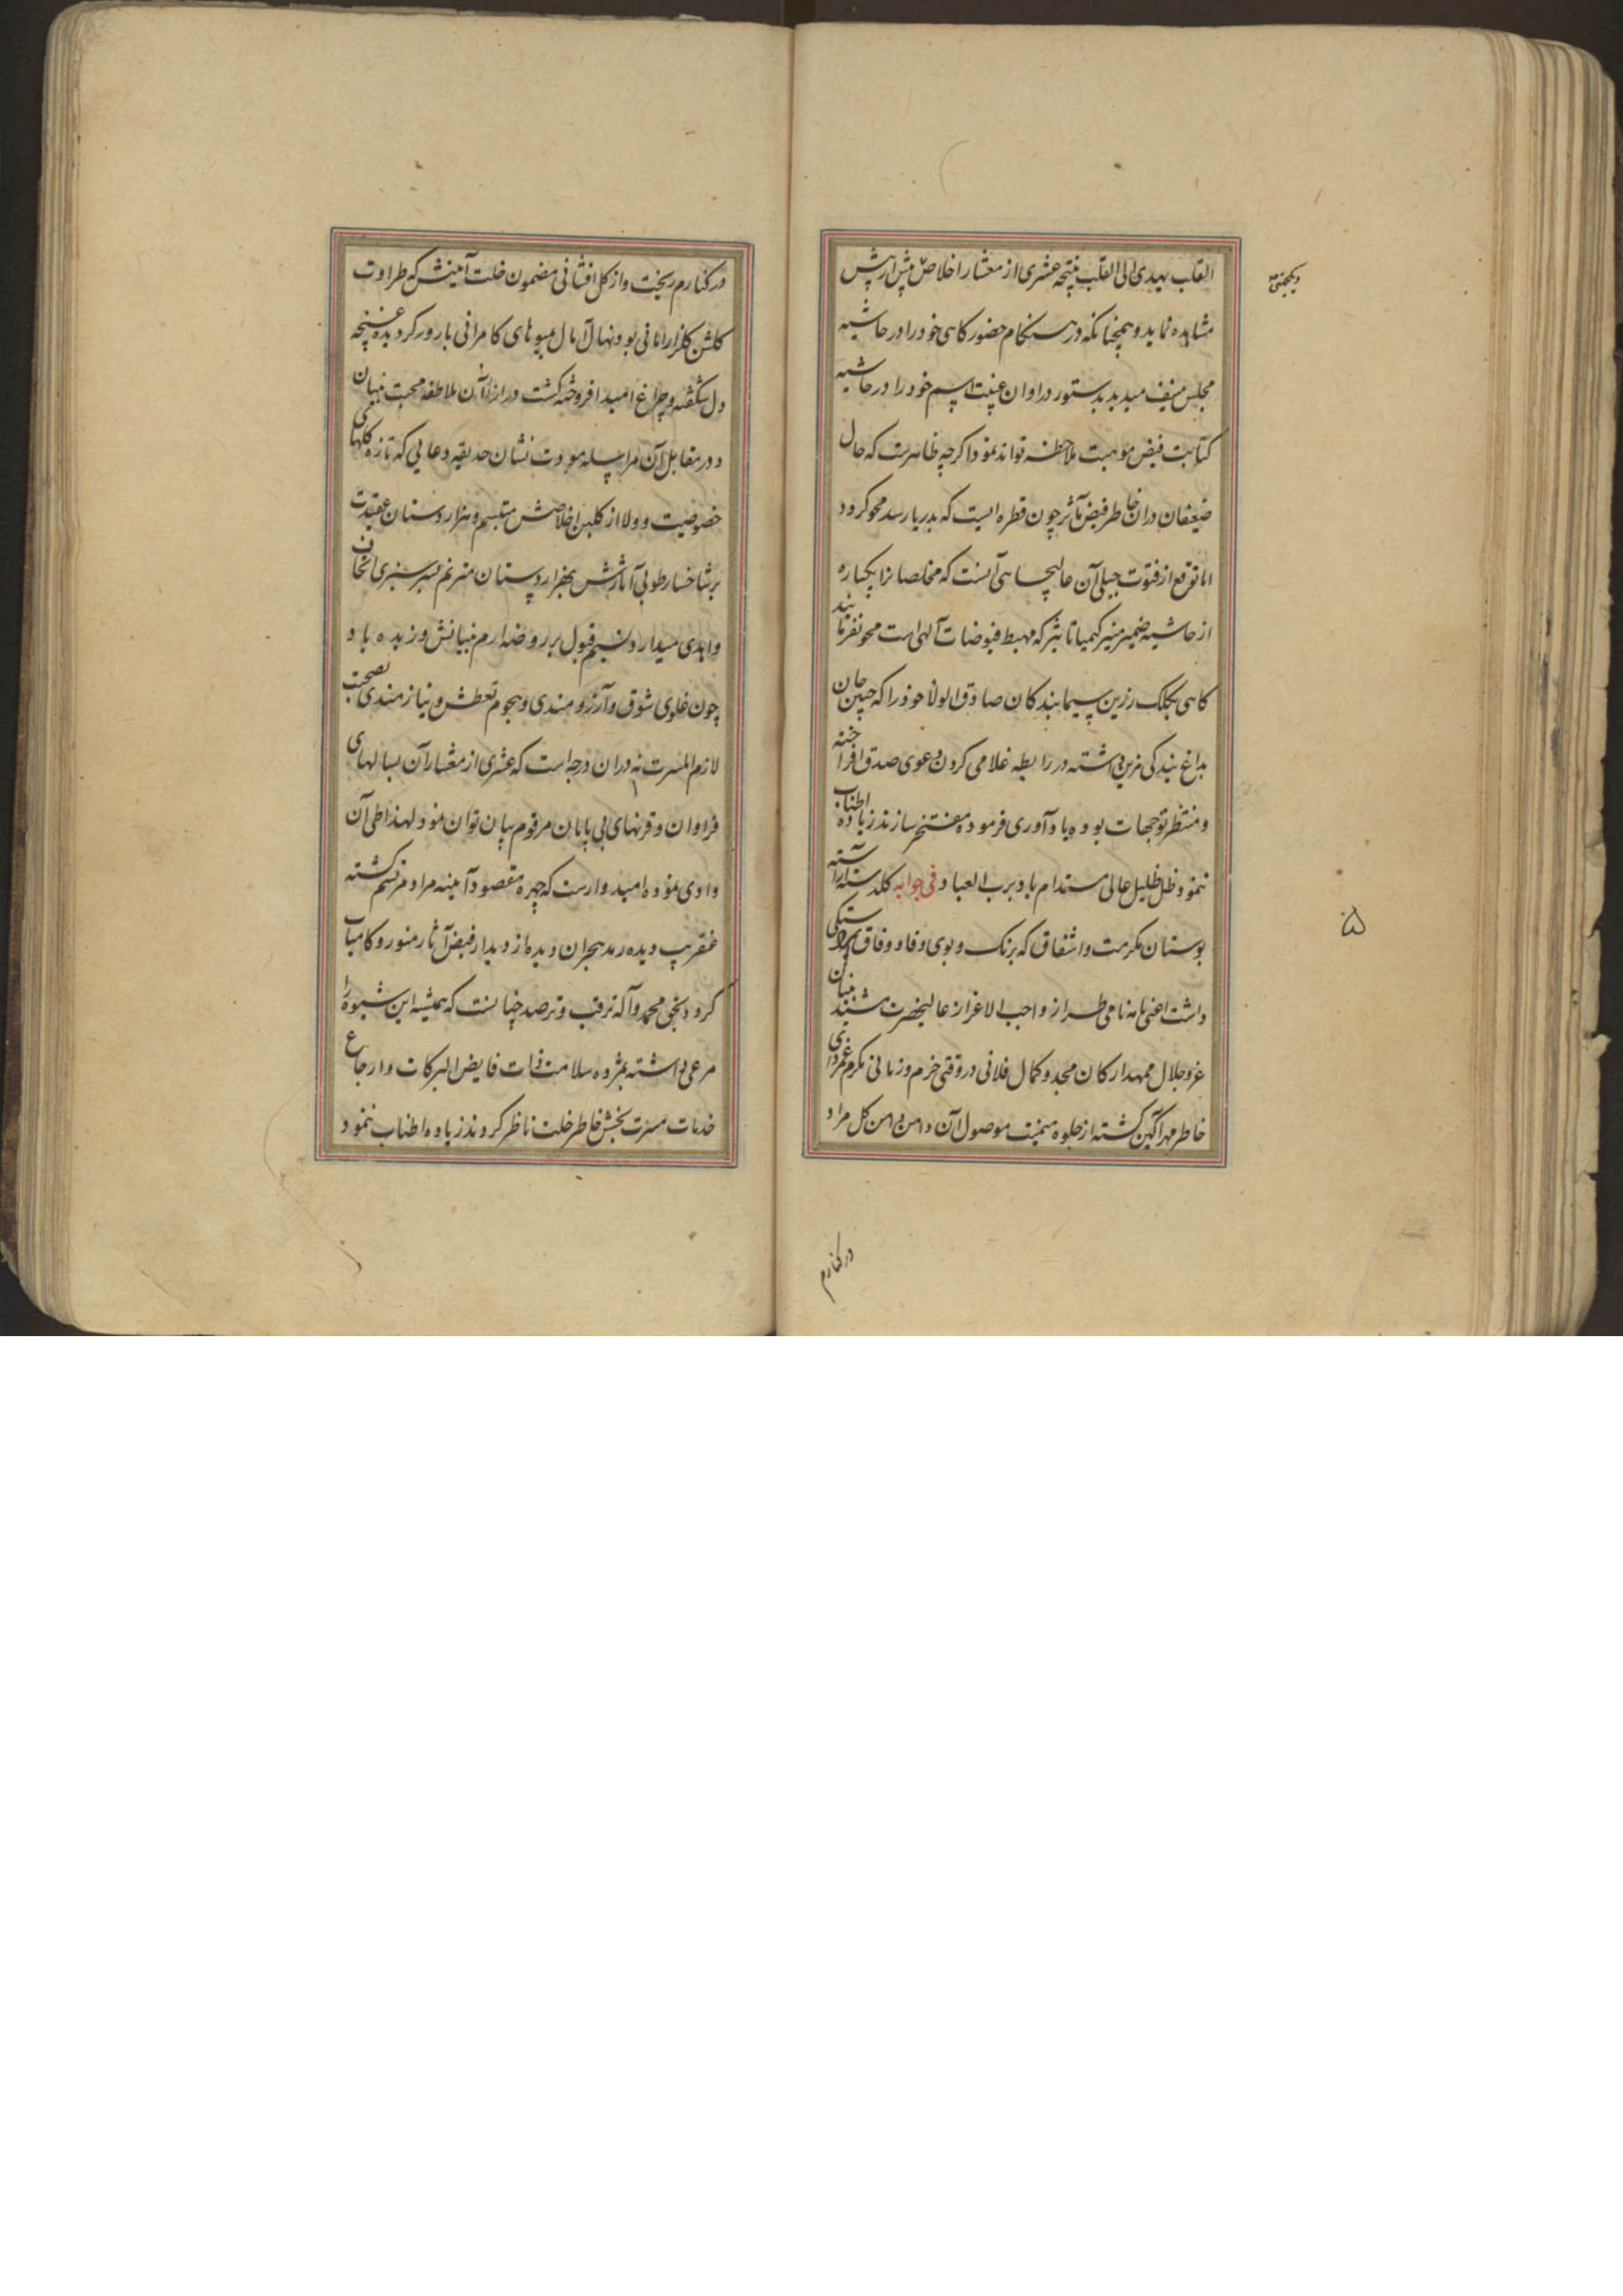 القلب یهدی الی القلب نتیجه عشری از معشار اخلاص
مشاهده نماید و همچنانکه در هنکام حضور کاهی خود را در حاشیه
مجلس منیف میدید بدستور در اوان غیبت اسم خود را در حاشیه
کتابت فیض موهبت ملاحظه تواند نمود اکرچه ظاهرست که حال
ضعیفان در ان خاطر فیض مآثر چون قطره ایست که بدریا رسد محو کردد
اما توقع از فتوت جبلی آن عالیجاهی آنست که مخلصانرا یکباره
از حاشیه ضمیر منیر کیمیا تاثیر که مهبط فیوضات آلهی است محو نفرمایند
کاهی بکلک زرین سیما بندکان صادق الولاء خود را که جبین جان
بداغ بندکی مزین داشته در رابطه غلامی کردن دعوی صدق افراخته
و منتظر توجهات بوده یاد آوری فرموده مفتخر سازند زیاده اطناب
ننمود و ظل ظلیل عالی مستدام باد برب العباد فی جوابه کلدسته آراسته
بوستان مکرمت و اشفاق که برنک و بوی وفا و وفاق
داشت اعنی نامه نامی طراز واجب الاعزاز عالیحضرت مشیید بنیان
عز و جلال ممهد ارکان مجد و کمال فلانی در وقتی خرم و زمانی مکرم
خاطر مهر آکین کشته از جلوه میمنت موصول آن دامن دامن کل مراد
در کنارم
در کنارم ریخت و از کل افشانی مضمون خلت آمینش که طراوت
کلشن کلزار امانی بود نهال آمال میوهای کامرانی بارور کردیده غنچه
دل شکفته و چراغ امید افروخته کشت در ازاء آن ملاطفه محبت بنیان
و در مقابل آن مراسله مودت نشان حدیقه دعایی که تازه کلهای
خصوصیت و ولا از کلبن اخلاصش متبسم و هزار دستان عقیدت
بر شاخسار طوبی آثارش بهزار دستان مترنم بسرسبزی اتحاف
و اهدی میدارد نسیم قبول بر روضه ارم بنیانش وزیده باد
چون غلوی شوق و آرزومندی و هجوم تعطش و نیازمندی بصحبت
لازم المسرت نه در ان درجه است که عشری از معشار آن بسالهای
فراوان و قرنهای بی پایان مرقوم بیان توان نمود لهذا طی آن
وادی نموده امیدوارست که چهره مقصود آیینه مراد مرتسم کشته
عنقریب دیده رمد هجران دیده از دیدار فیض آثار منور و کامیاب
کردد بحق محمد و آله ترقب و ترصد چنانست که همیشه این شیوه را
مرعی داشته بمژده سلامت ذات فایض البرکات و ارجاع
خدمات مسرت بخش خاطر خلت ناظر کردند زیاده اطناب ننمود